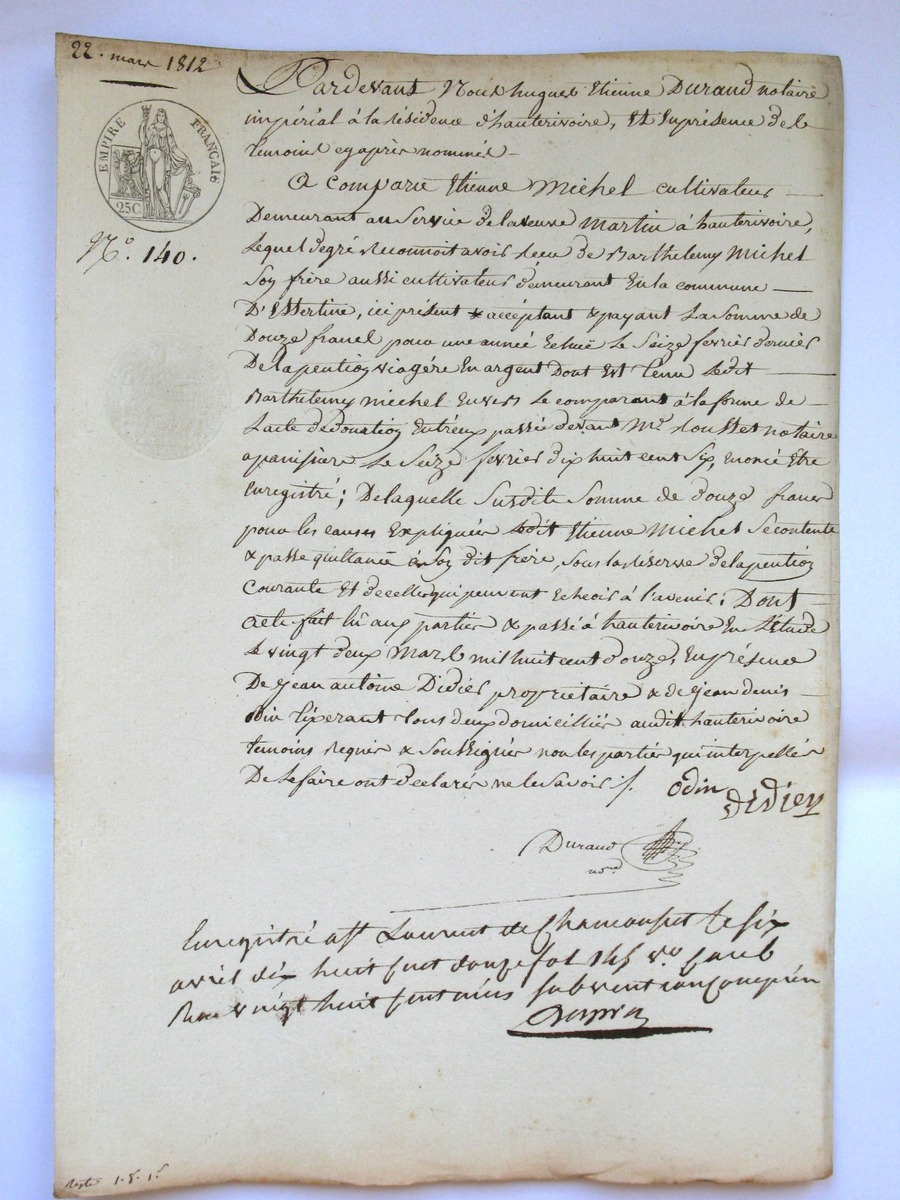 22. mars 1812
EMPIRE FRANÇAIS
25C
N°. 140.
Pardevant Nous hugues Etienne Durand notaire
impérial à la résidence d'hauterivoire, Et En présence de
temoins cy après nommés
A comparu Etienne Michel cultivateur
Demeurant au service de la veuve Martin à hauterivoire,
Lequel de gré Reconnoit avoir Reçu de Barthelemy Michel
Soy frère aussi cultivateur demeurant En la commune
D'Essertine, ici présent & accéptant & payant La Somme de
Douze francs pour une année Echuë Le Seize fevrier dernier
De la pention viagère En argent Dont Est tenu Ledit
Barthelemy michel Envers Le comparant à la forme de
Lacte de donation Entreux passé devant Me. Rousset notaire
a panissière Le Seize fevrier dix huit cent Six, Enoncé Etre
Enregistré; De laquelle Susdite Somme de douze francs
pour les causes Expliquées Ledit Etienne Michel Se contente
& passe quittance à Soy dit frère, sous la réserve de la pention
courante Et de celles qui peuvent Echeoir à l'avenir; Dont
acte fait lû aux parties & passé à hauterivoire En L'étude
Le vingt deux Mars mil huit cent douze, En présence
De Jean antoine Didier propriétaire & de Jean denis
odin tixerant tous deux domiciliés audit hauterivoire
temoins requis & Soussignés non les parties qui interpellés
De le faire ont déclarés ne le savoir ./.
odin
didier
Durand
no.re
Enregistré a St Laurent de Chamousset le six
avril dix huit cent douze fol 145 vo. case
Reçu vingt huit centimes subvention comprise